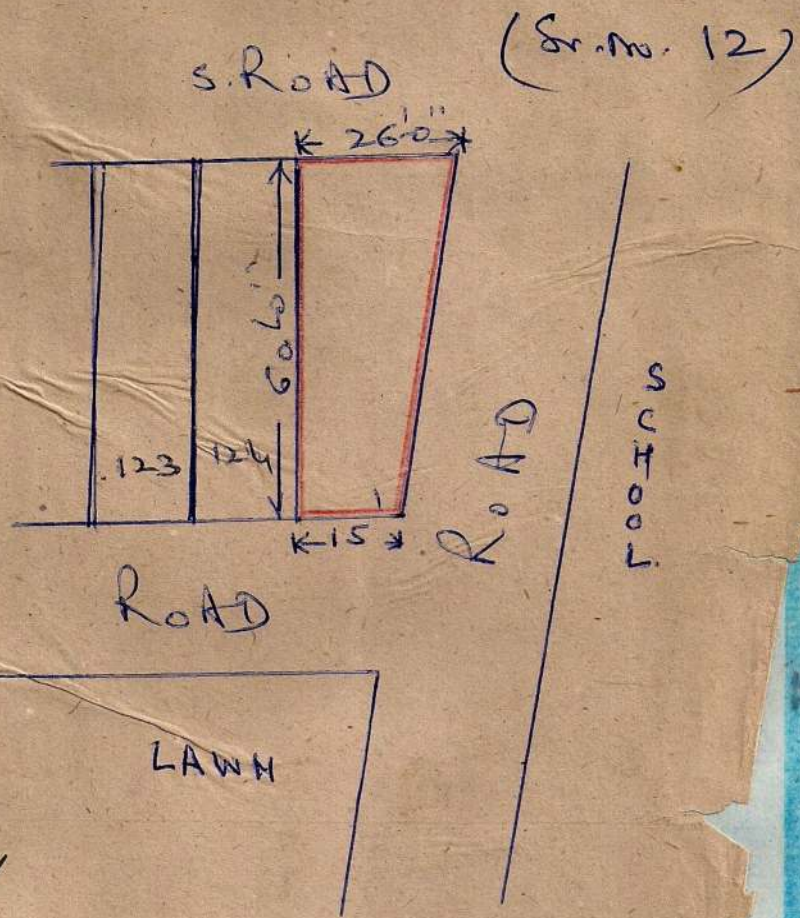 (Sr. no. 12)
S. ROAD
26'0"
60'0"
123
124
15'
ROAD
ROAD
SCHOOL
LAWN